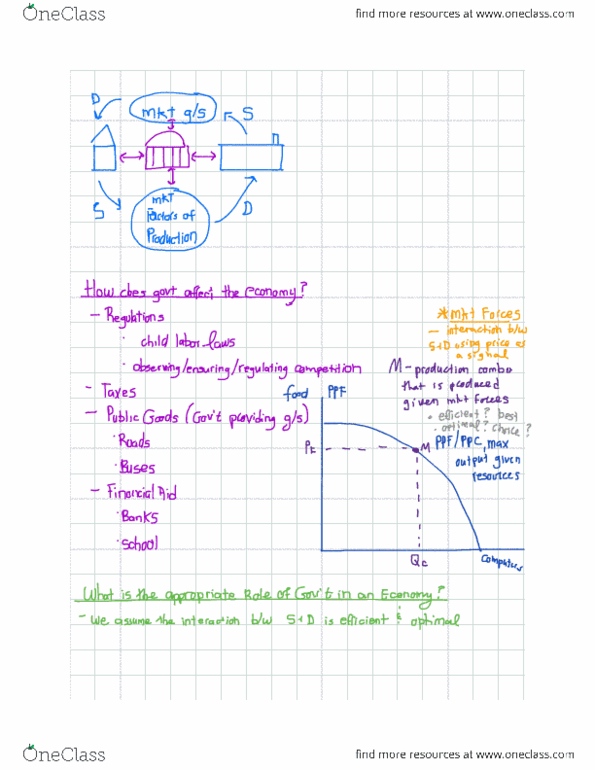 OneClass
find more resources at www.oneclass.com
D
mkt g/s
S
S
mkt
Factors of
Production
D
How does govt affect the economy?
- Regulations
· child labor laws
· observing/ensuring/regulating competition
- Taxes
- Public Goods (Gov't providing g/s)
· Roads
· Buses
- Financial Aid
· Banks
· School
*Mkt Forces
- interaction b/w
S+D using price as
a signal
M-production combo
that is produced
given mkt forces
· efficient? best
· optimal? choice?
PPF/PPC, max
output given
resources
food
PPF
PF
M
Qc
Computers
What is the appropriate Role of Gov't in an Economy?
- We assume the interaction b/w S+D is efficient & optimal
OneClass
find more resources at www.oneclass.com